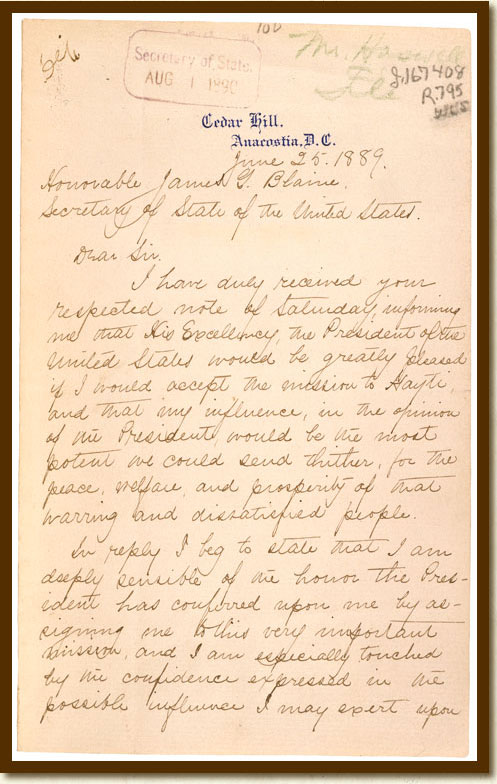 100
Secretary of State.
AUG 1 1890
Mr. Haswell
File
R.795
Cedar Hill.
Anacostia, D.C.
June 25. 1889.
Honorable James G. Blaine.
Secretary of State of the United States.
Dear Sir.
I have duly received your
respected note of Saturday, informing
me that His Excellency, the President of the
United States would be greatly pleased
if I would accept the mission to Hayti,
and that my influence, in the opinion
of the President, would be the most
potent we could send thither, for the
peace, welfare, and prosperity of that
warring and dissatisfied people.
In reply I beg to state that I am
deeply sensible of the honor the Pres-
ident has conferred upon me by as-
signing me to this very important
mission, and I am especially touched
by the confidence expressed in the
possible influence I may exert upon